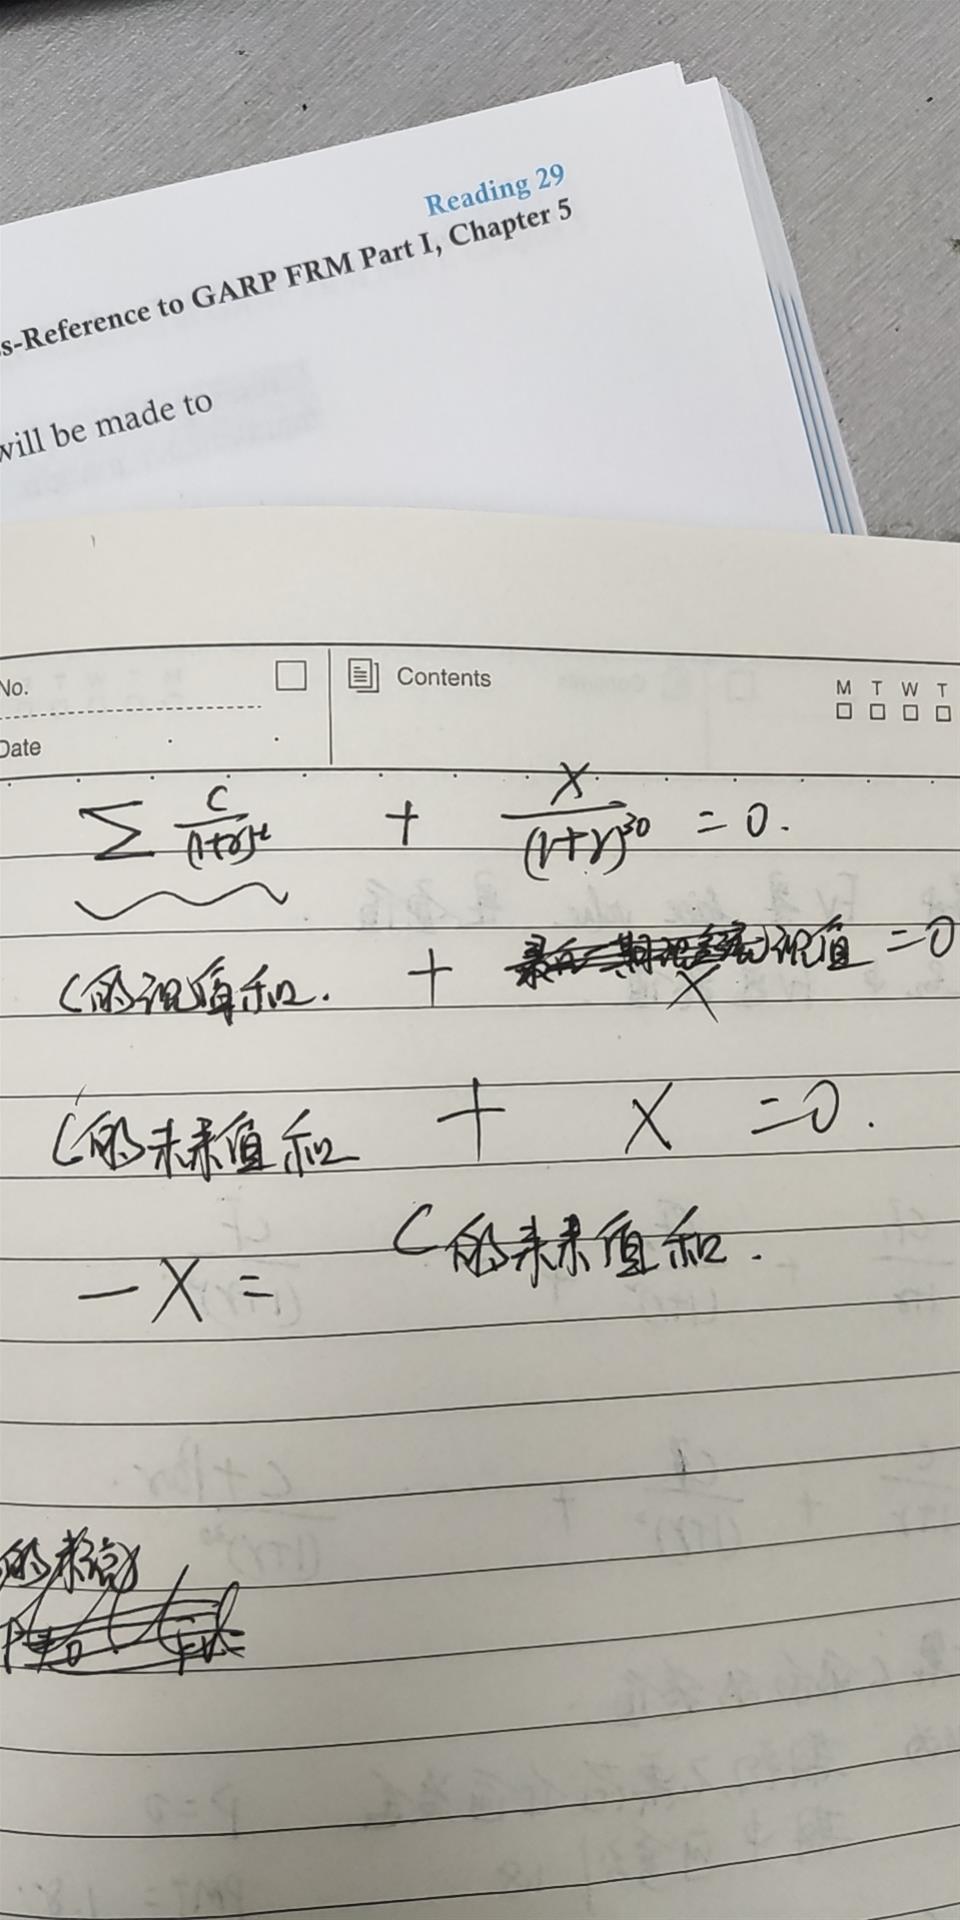 Reading 29
s-Reference to GARP FRM Part I, Chapter 5
will be made to
No.
Contents
M T W T
Date
∑ C/(1+r)^t + X/(1+r)^30 = 0.
C的现值和. + 现值 = 0
X
C的未来值和 + X = 0.
-X = C的未来值和.